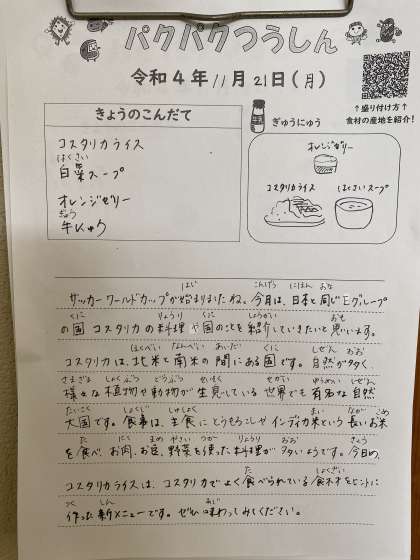 パクパクつうしん
令和4年11月21日(月)
↑盛り付け方↑
食材の産地を紹介!
きょうのこんだて
コスタリカライス
はくさい
白菜スープ
オレンジゼリー
ぎゅう
牛にゅう
ぎゅうにゅう
オレンジゼリー
コスタリカライス
はくさいスープ
はじ こんげつ にほん おな
サッカーワールドカップが始まりましたね。今月は、日本と同じEグループ
くに りょうり くに しょうかい おも
の国 コスタリカの料理や国のことを紹介していきたいと思います。
ほくべい なんべい あいだ くに しぜん おお
コスタリカは、北米と南米の間にある国です。自然が多く、
さまざま しょくぶつ どうぶつ せいそく せかい ゆうめい しぜん
様々な植物や動物が生息している世界でも有名な自然
たいこく しょくじ しゅしょく まい なが こめ
大国です。食事は、主食にとうもろこしやインディカ米という長いお米
た にく まめ やさい つか りょうり おお きょう
を食べ、お肉、お豆、野菜を使った料理が多いようです。今日の、
た しょくざい
コスタリカライスは、コスタリカでよく食べられている食材をヒントに
つく しん あじ
作った新メニューです。ぜひ味わってみてください。